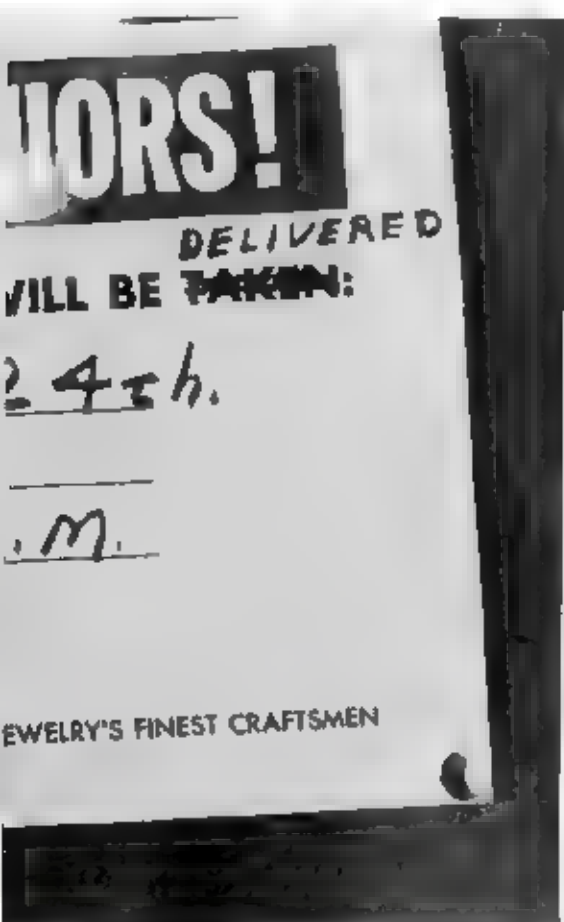 IORS!
DELIVERED
WILL BE TAKEN:
24th.
.M.
EWELRY'S FINEST CRAFTSMEN